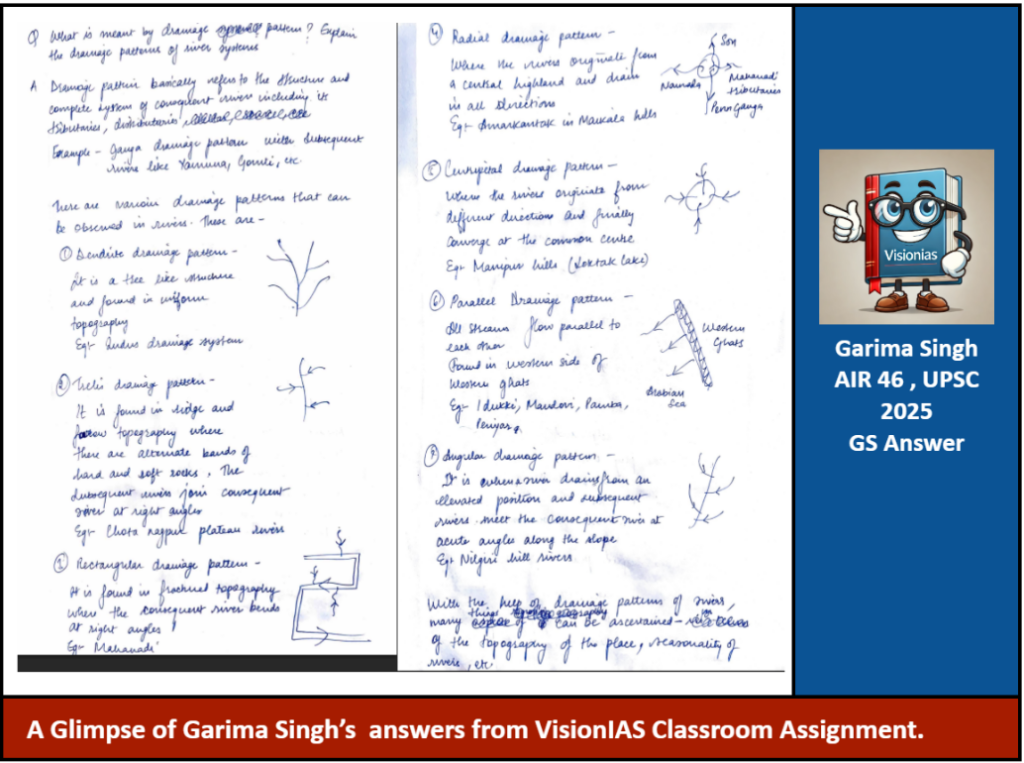 Q What is meant by drainage pattern? Explain
the drainage patterns of river systems
A Drainage pattern basically refers to the structure and
complete system of consequent rivers including its
tributaries, distributaries
Example - Ganga drainage pattern with subsequent
rivers like Yamuna, Gomti, etc.
There are various drainage patterns that can
be observed in rivers. These are -
① Dendrite drainage pattern -
It is a tree like structure
and found in uniform
topography
Eg:- Indus drainage system
② Trelis drainage pattern -
It is found in ridge and
topography where
there are alternate bands of
hard and soft rocks. The
subsequent rivers join consequent
river at right angles
Eg:- Chota nagpur plateau rivers
③ Rectangular drainage pattern -
It is found in fractured topography
where the consequent river bends
at right angles
Eg:- Mahanadi
④ Radial drainage pattern -
Where the rivers originate from
a central highland and drain
in all directions
Eg:- Amarkantak in Maikala hills
Son
Narmada
Mahanadi
tributaries
Penn Ganga
⑤ Centripetal drainage pattern -
Where the rivers originate from
different directions and finally
converge at the common centre
Eg:- Manipur hills (Loktak lake)
⑥ Parallel Drainage pattern -
All stream flow parallel to
each other
Found in western side of
Western ghats
Eg:- Idukki, Mandovi, Pamba,
Periyar,
Western
Ghats
Arabian
Sea
⑦ Angular drainage pattern -
It is when a river drains from an
elevated position and subsequent
rivers meet the consequent river at
acute angles along the slope
Eg:- Nilgiri hill rivers
With the help of drainage patterns of rivers,
many things can be ascertained -
of the topography of the place, seasonality of
rivers, etc.
Visionias
Garima Singh
AIR 46 , UPSC
2025
GS Answer
A Glimpse of Garima Singh's answers from VisionIAS Classroom Assignment.